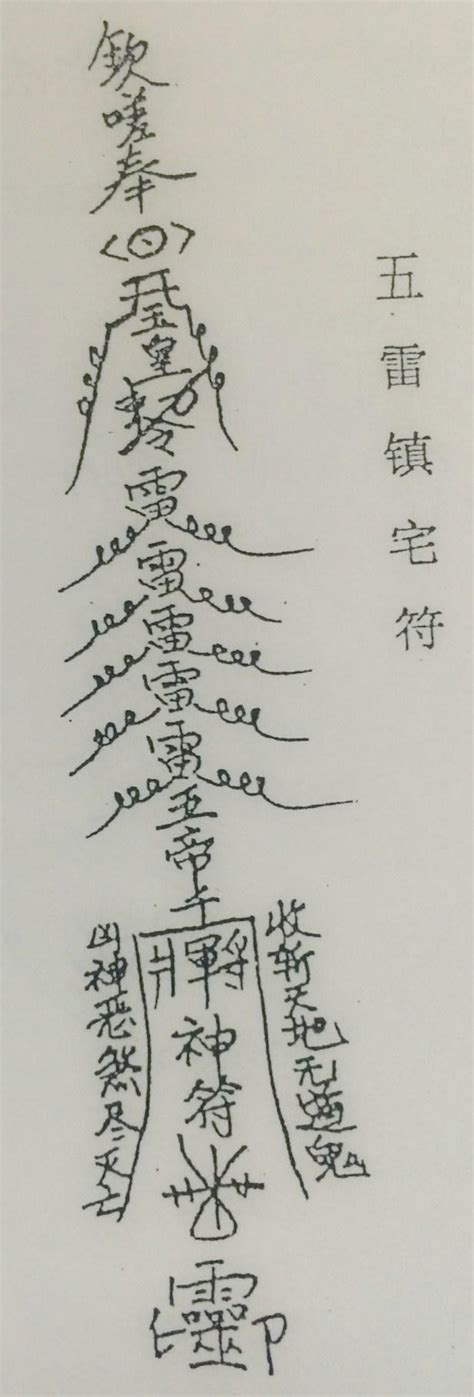 五雷镇宅符
奉
玉皇
雷
雷
雷
雷
雷
五帝
将軍
神符
收斩天地无道鬼
凶神恶煞尽灭亡